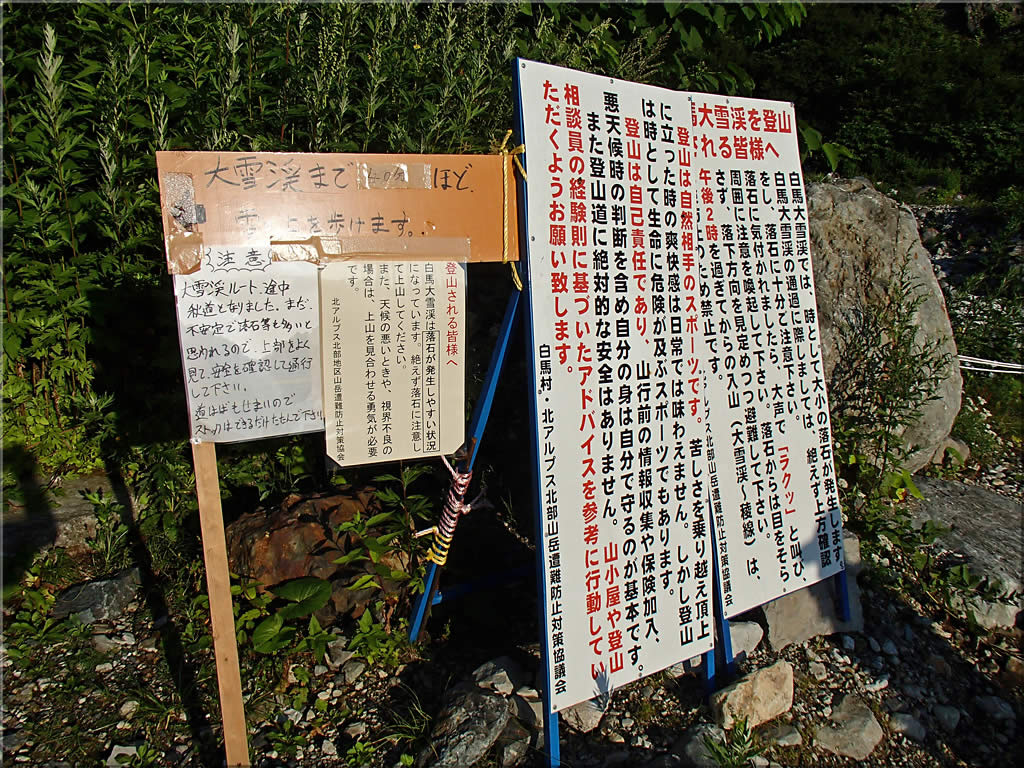 大雪渓まで40分ほど、
雪の上を歩けます。
注意
大雪渓ルート、途中
秋道となりました。まだ
不安定で落石等も多いと
思われるので、上部をよく
見て、安全を確認して通行
して下さい。
道はばもせまいので
ストックはできるだけたたんで下さい
登山される皆様へ
白馬大雪渓は落石が発生しやすい状況
になっています。絶えず落石に注意し
て上山してください。
また、天候の悪いときや、視界不良の
場合は、上山を見合わせる勇気が必要
です。
北アルプス北部地区山岳遭難防止対策協会
馬大雪渓を登山
される皆様へ
白馬大雪渓では、時として大小の落石が発生します。
白馬大雪渓の通過に際しましては、絶えず上方確認
をし、落石に十分ご注意下さい。
落石に気付かれましたら、大声で「ラクッ」と叫び、
周囲に注意を喚起して下さい。落石からは目をそら
さず、落下方向を見定めつつ避難して下さい。
午後2時を過ぎてからの入山（大雪渓～稜線）は、
のため禁止です。
アルプス北部山岳遭難防止対策協議会
登山は自然相手のスポーツです。苦しさを乗り越え頂上
に立った時の爽快感は日常では味わえません。しかし登山
は時として生命に危険が及ぶスポーツでもあります。
登山は自己責任であり、山行前の情報収集や保険加入、
悪天候時の判断を含め自分の身は自分で守るのが基本です。
また登山道に絶対的な安全はありません。山小屋や登山
相談員の経験則に基づいたアドバイスを参考に行動してい
ただくようお願い致します。
白馬村・北アルプス北部山岳遭難防止対策協議会